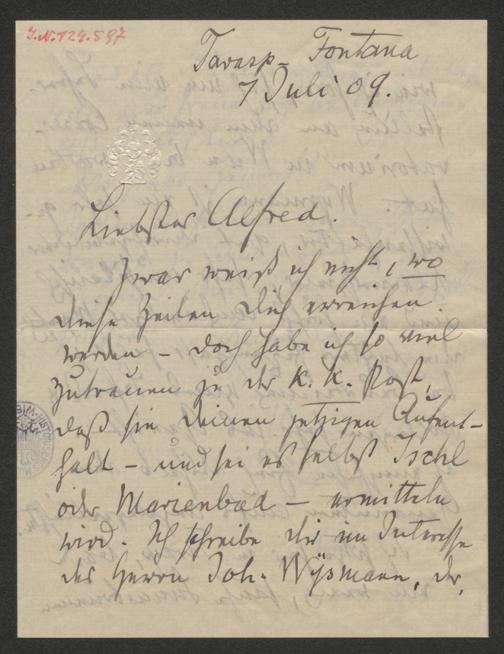 J.N. 124.597
Tarasp-Fontana
7 Juli 09.
Liebster Alfred.
Zwar weiß ich nicht, wo
diese Zeilen Dich erreichen
werden – doch habe ich so viel
Zutrauen zu der K. K. Post,
daß sie Deinen jetzigen Aufent-
halt – und sei es selbst Ischl
oder Marienbad – ermitteln
wird. Ich schreibe Dir im Interesse
des Herrn Joh. Wijsmann, der,